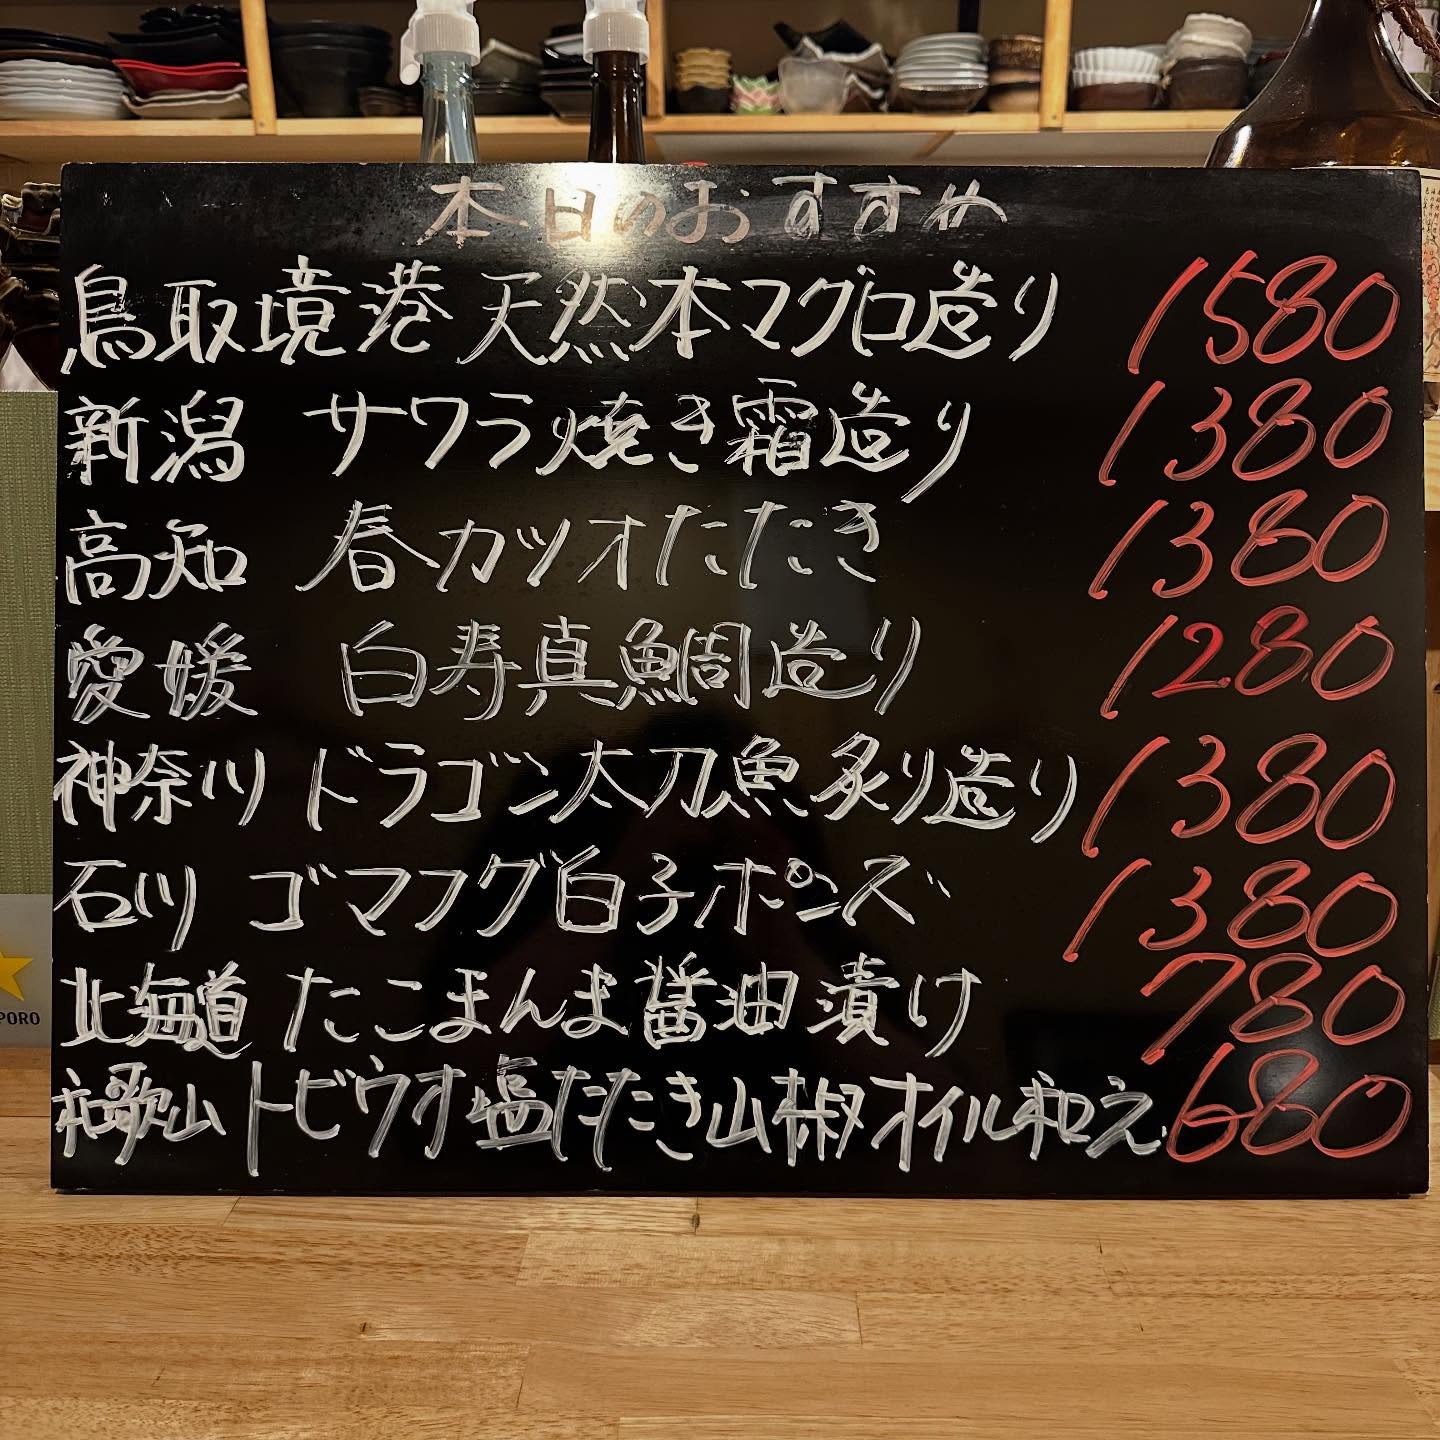 本日のおすすめ
鳥取境港 天然本マグロ造り 1580
新潟 サワラ焼き霜造り 1380
高知 春カツオたたき 1380
愛媛 白寿真鯛造り 1280
神奈川 ドラゴン太刀魚炙り造り 1380
石川 ゴマフグ白子ポンズ 1380
北海道 たこまんま醤油漬け 780
和歌山 トビウオ塩たたき山椒オイル和え 680
PORO